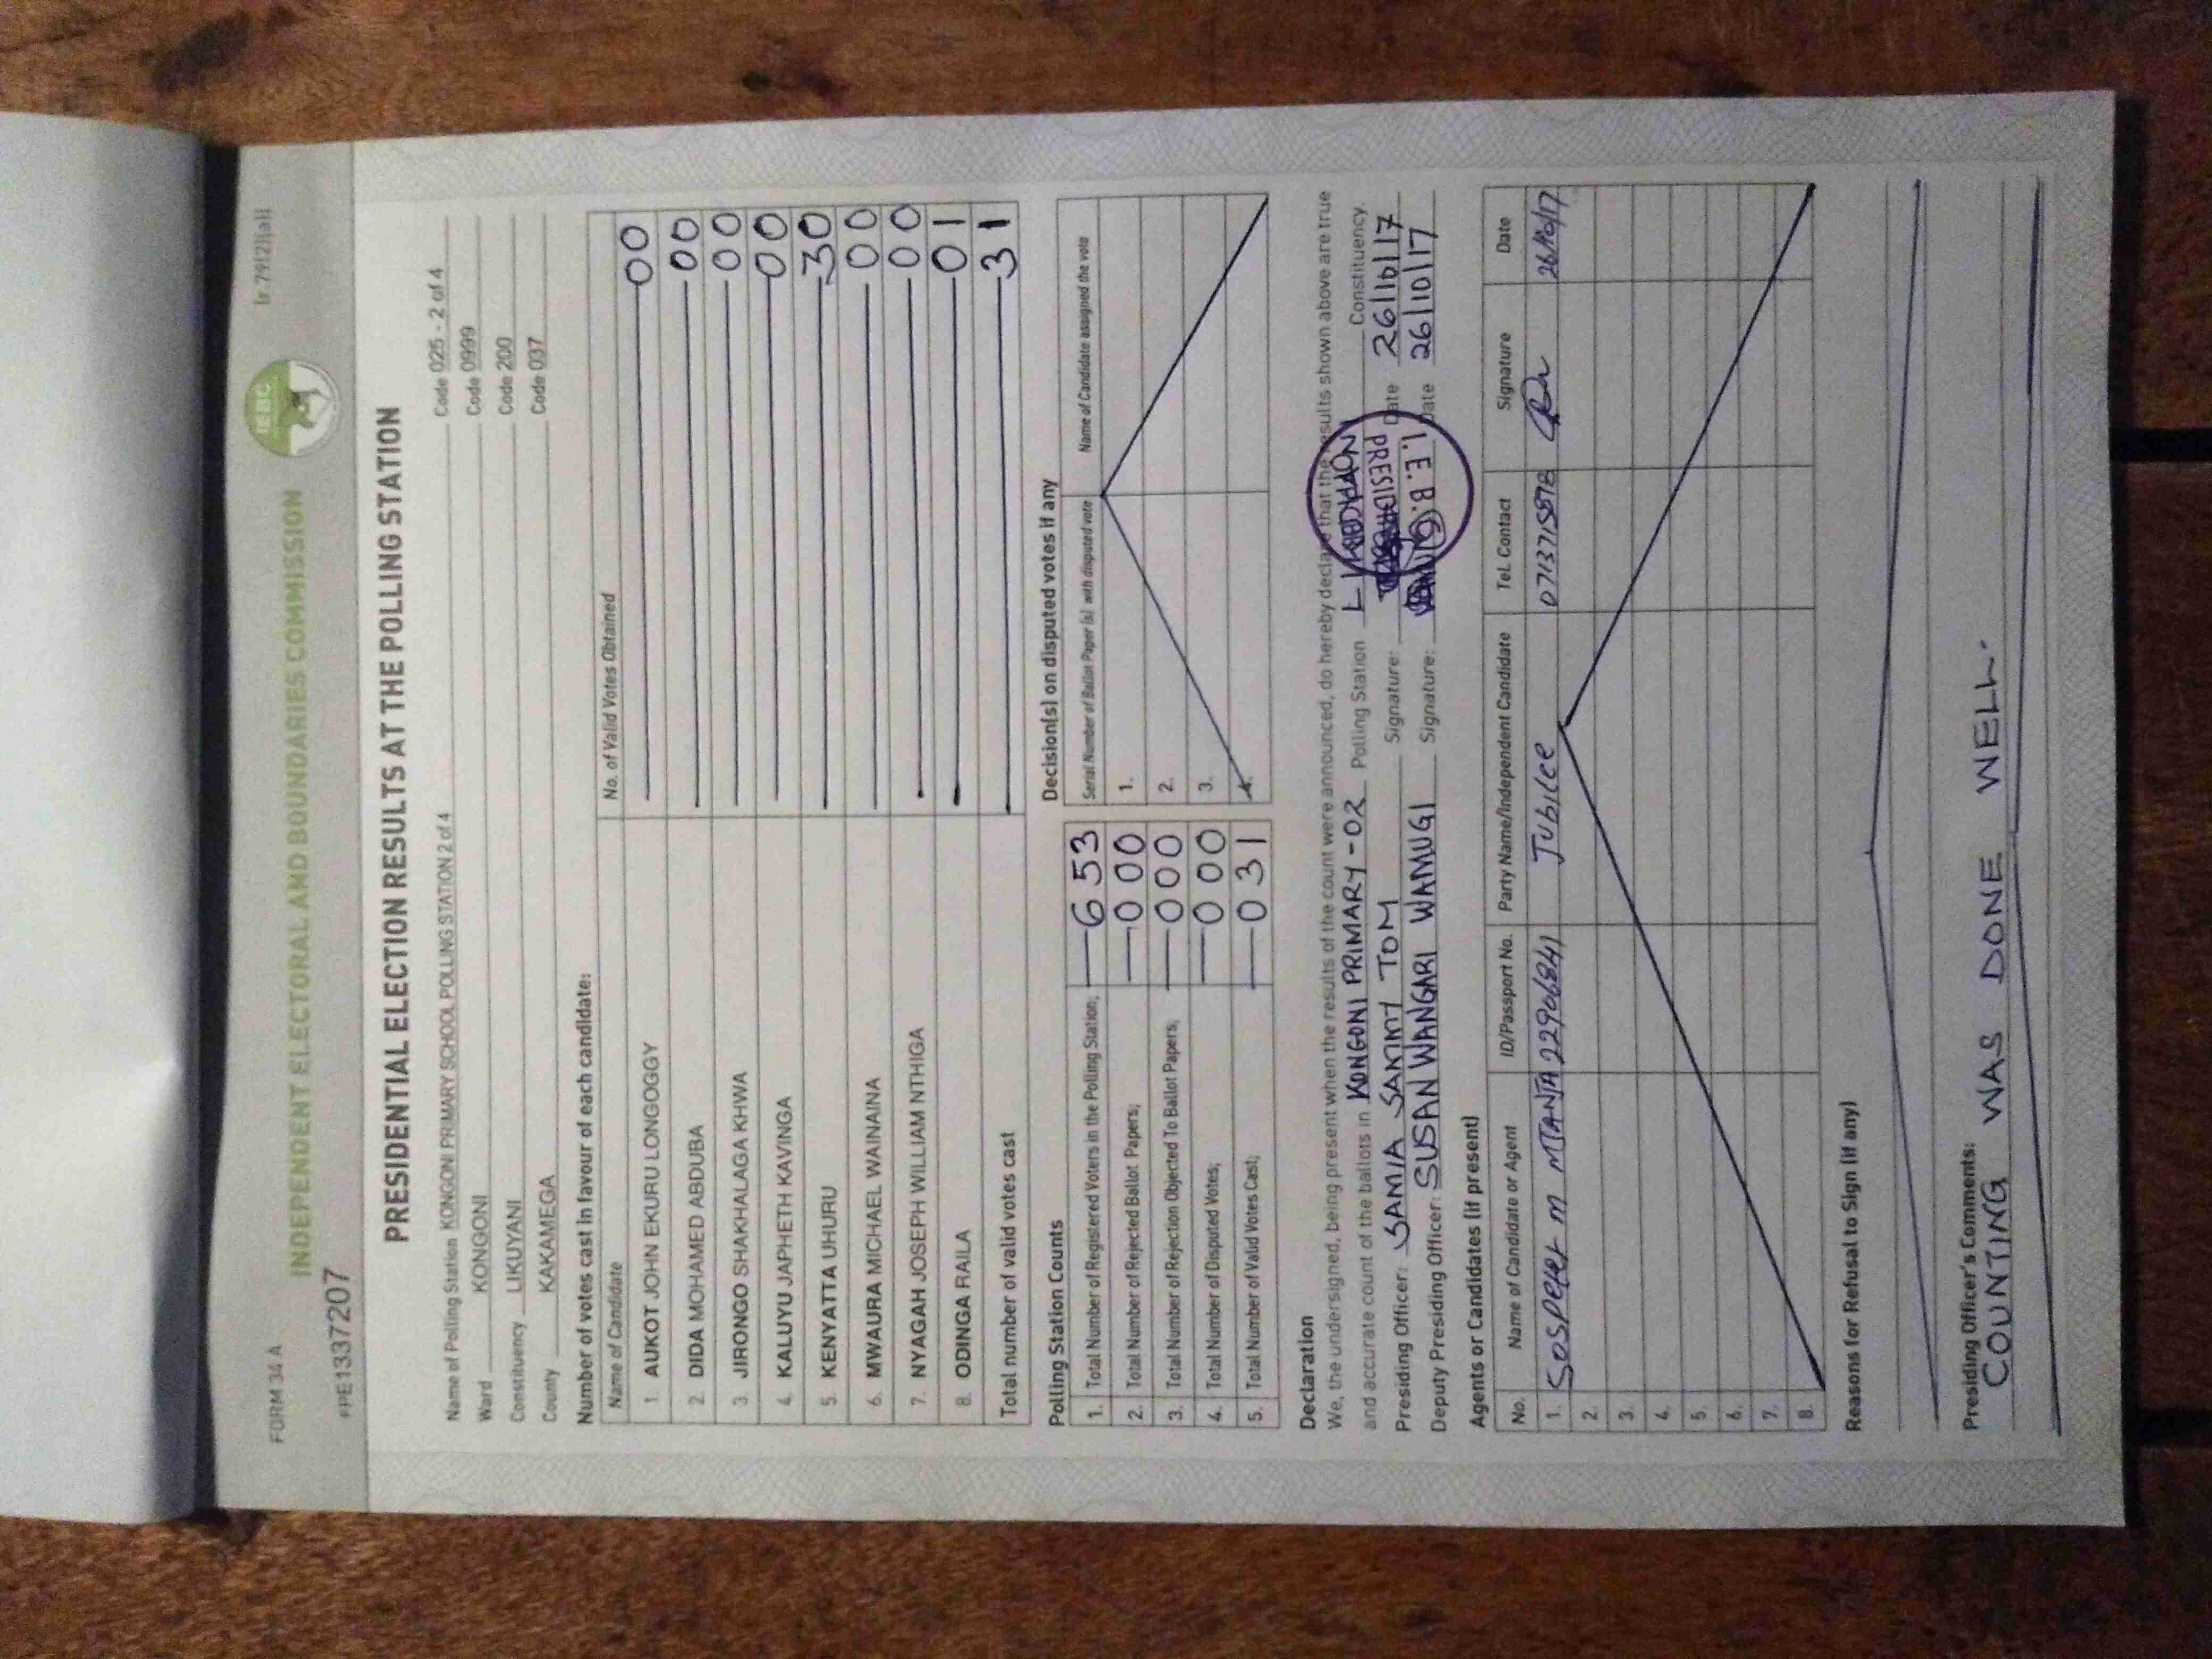 FORM 34 A
[r 79(2)(a)]
INDEPENDENT ELECTORAL AND BOUNDARIES COMMISSION
IEBC
PRE1337207
PRESIDENTIAL ELECTION RESULTS AT THE POLLING STATION
Name of Polling Station KONGONI PRIMARY SCHOOL POLLING STATION 2 of 4 Code 025 - 2 of 4
Ward KONGONI Code 0999
Constituency LIKUYANI Code 200
County KAKAMEGA Code 037
Number of votes cast in favour of each candidate:
Name of Candidate No. of Valid Votes Obtained
1. AUKOT JOHN EKURU LONGOGGY 00
2. DIDA MOHAMED ABDUBA 00
3. JIRONGO SHAKHALAGA KHWA 00
4. KALUYU JAPHETH KAVINGA 00
5. KENYATTA UHURU 30
6. MWAURA MICHAEL WAINAINA 00
7. NYAGAH JOSEPH WILLIAM NTHIGA 00
8. ODINGA RAILA 01
Total number of valid votes cast 31
Polling Station Counts
1. Total Number of Registered Voters in the Polling Station; 653
2. Total Number of Rejected Ballot Papers; 000
3. Total Number of Rejection Objected To Ballot Papers; 000
4. Total Number of Disputed Votes; 000
5. Total Number of Valid Votes Cast; 031
Decision(s) on disputed votes if any
Serial Number of Ballot Paper (s) with disputed vote Name of Candidate assigned the vote
1.
2.
3.
4.
Declaration
We, the undersigned, being present when the results of the count were announced, do hereby declare that the results shown above are true
and accurate count of the ballots in KONGONI PRIMARY - 02 Polling Station Constituency.
Presiding Officer: SAMIA SAKINY TOM Signature: Date 26/10/17
Deputy Presiding Officer: SUSAN WANGARI WAMUGI Signature: Date 26/10/17
I.E.B.C
PRESIDING
Agents or Candidates (if present)
No. Name of Candidate or Agent ID/Passport No. Party Name/Independent Candidate Tel. Contact Signature Date
1. Sospeter M 22906841 Jubilee 0713715878 26/10/17
2.
3.
4.
5.
6.
7.
8.
Reasons for Refusal to Sign (if any)
Presiding Officer's Comments:
COUNTING WAS DONE WELL.